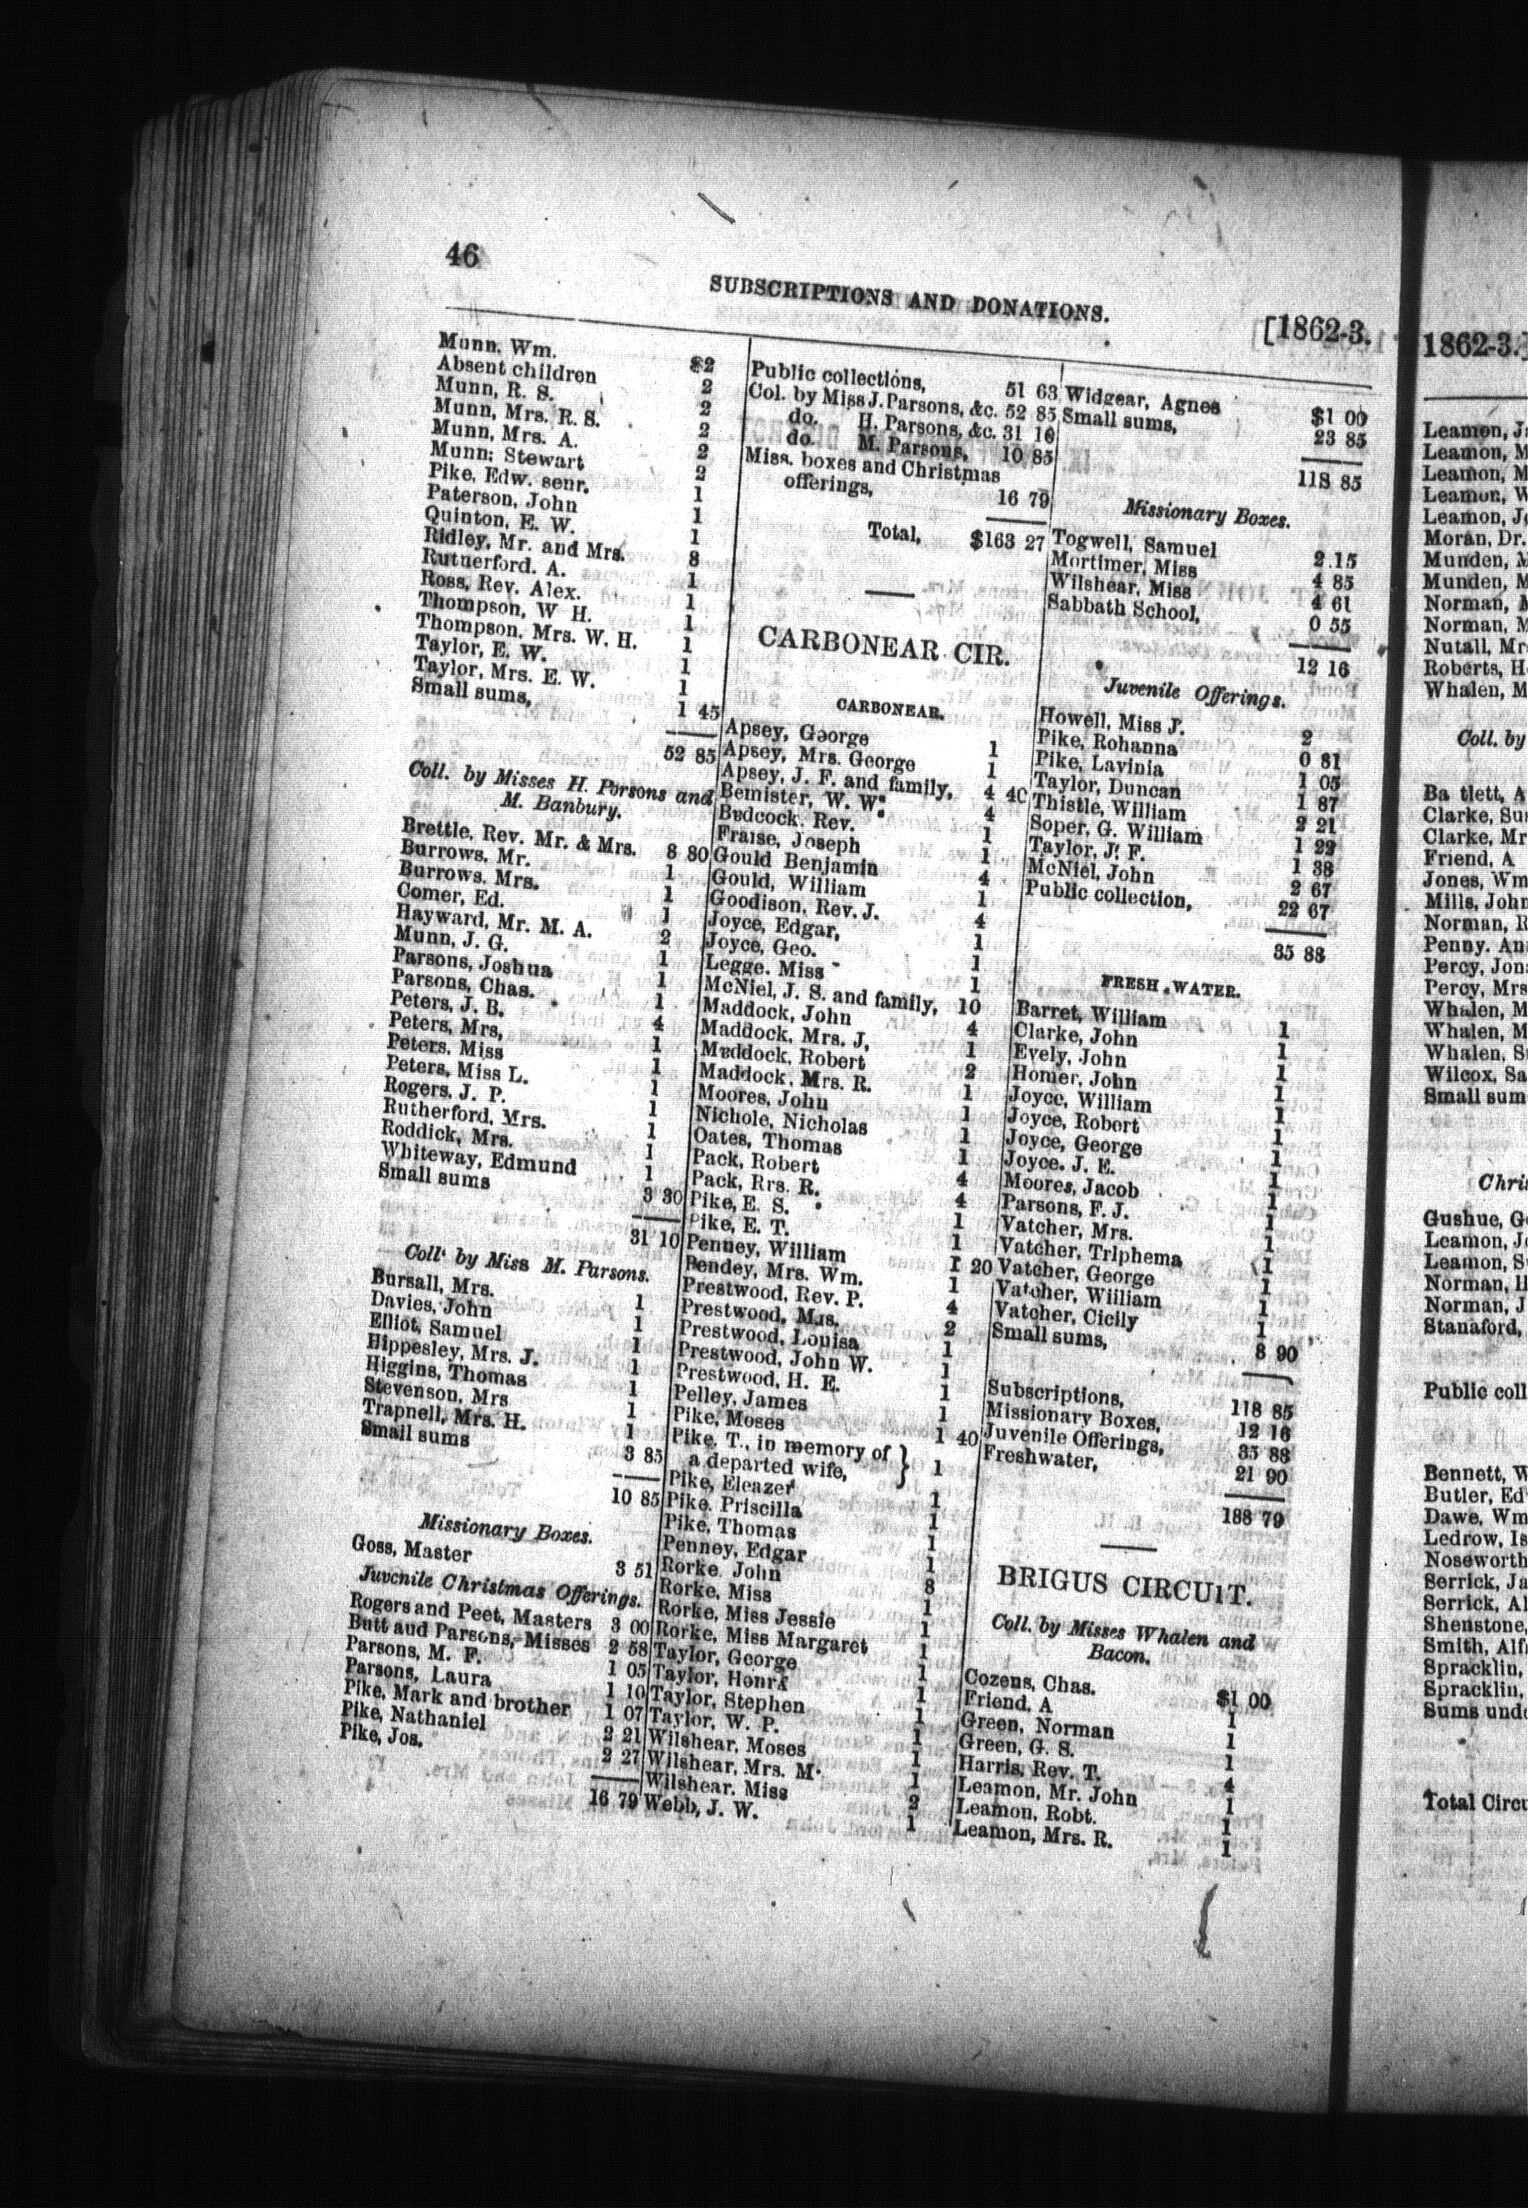 46
SUBSCRIPTIONS AND DONATIONS.
[1862-3.
Munn, Wm. $2
Absent children 2
Munn, R. S. 2
Munn, Mrs. R. S. 2
Munn, Mrs. A. 2
Munn: Stewart 2
Pike, Edw. senr. 1
Paterson, John 1
Quinton, E. W. 1
Ridley, Mr. and Mrs. 8
Rutherford. A. 1
Ross, Rev. Alex. 1
Thompson, W H. 1
Thompson, Mrs. W. H. 1
Taylor, E. W. 1
Taylor, Mrs. E. W. 1
Small sums, 1 45
52 85
Coll. by Misses H. Parsons and
M. Banbury.
Brettle, Rev. Mr. & Mrs. 8 80
Burrows, Mr. 1
Burrows. Mrs. 1
Comer, Ed. 1
Hayward, Mr. M. A. 2
Munn, J. G. 1
Parsons, Joshua 1
Parsons, Chas. 1
Peters, J. B. 4
Peters, Mrs, 1
Peters. Miss 1
Peters, Miss L. 1
Rogers, J. P. 1
Rutherford, Mrs. 1
Roddick, Mrs. 1
Whiteway, Edmund 1
Small sums 3 30
31 10
Coll' by Miss M. Parsons.
Bursall, Mrs. 1
Davies, John 1
Elliot, Samuel 1
Hippesley, Mrs. J. 1
Higgins, Thomas 1
Stevenson, Mrs 1
Trapnell, Mrs. H. 1
Small sums 3 85
10 85
Missionary Boxes.
Goss, Master 3 51
Juvenile Christmas Offerings.
Rogers and Peet, Masters 3 00
Butt and Parsons, Misses 2 58
Parsons, M. F. 1 05
Parsons, Laura 1 10
Pike, Mark and brother 1 07
Pike, Nathaniel 2 21
Pike, Jos. 2 27
16 79
Public collections, 51 63
Col. by Miss J. Parsons, &c. 52 85
do. H. Parsons, &c. 31 10
do. M. Parsons, 10 85
Miss. boxes and Christmas
offerings, 16 79
Total, $163 27
CARBONEAR CIR.
CARBONEAR.
Apsey, George 1
Apsey, Mrs. George 1
Apsey, J. F. and family, 4 40
Bemister, W. W. 4
Badcock, Rev. 1
Fraise, Joseph 1
Gould Benjamin 4
Gould, William 1
Goodison, Rev. J. 4
Joyce, Edgar, 1
Joyce, Geo. 1
Legge. Miss 1
McNiel, J. S. and family, 10
Maddock, John 4
Maddock, Mrs. J, 1
Maddock, Robert 2
Maddock, Mrs. R. 1
Moores, John 1
Nichole, Nicholas 1
Oates, Thomas 1
Pack, Robert 4
Pack, Rrs. R. 4
Pike, E. S. 1
Pike, E. T. 1
Penney, William 1 20
Pendey, Mrs. Wm. 1
Prestwood, Rev. P. 4
Prestwood, Mrs. 2
Prestwood, Louisa 1
Prestwood, John W. 1
Prestwood, H. E. 1
Pelley, James 1
Pike, Moses 1 40
Pike, T., in memory of
a departed wife, } 1
Pike, Eleazer 1
Pike. Priscilla 1
Pike, Thomas 1
Penney, Edgar 1
Rorke John 8
Rorke. Miss 1
Rorke, Miss Jessie 1
Rorke, Miss Margaret 1
Taylor, George 1
Taylor, Henry 1
Taylor, Stephen 1
Taylor, W. P. 1
Wilshear, Moses 1
Wilshear, Mrs. M. 1
Wilshear. Miss 2
Webb, J. W. 1
Widgear, Agnes $1 00
Small sums, 23 85
118 85
Missionary Boxes.
Togwell, Samuel 2.15
Mortimer, Miss 4 85
Wilshear, Miss 4 61
Sabbath School, 0 55
12 16
Juvenile Offerings.
Howell, Miss J. 2
Pike, Rohanna 0 81
Pike, Lavinia 1 05
Taylor, Duncan 1 87
Thistle, William 2 21
Soper, G. William 1 29
Taylor, J. F. 1 38
McNiel, John 2 67
Public collection, 22 67
35 88
FRESH WATER.
Barret, William 1
Clarke, John 1
Evely, John 1
Homer, John 1
Joyce, William 1
Joyce, Robert 1
Joyce, George 1
Joyce. J. E. 1
Moores, Jacob 1
Parsons, F. J. 1
Vatcher, Mrs. 1
Vatcher, Triphema 1
Vatcher, George 1
Vatcher, William 1
Vatcher, Cicily 1
Small sums, 8 90
Subscriptions, 118 85
Missionary Boxes, 12 16
Juvenile Offerings, 35 88
Freshwater, 21 90
188 79
BRIGUS CIRCUIT.
Coll. by Misses Whalen and
Bacon.
Cozens, Chas. $1 00
Friend, A 1
Green, Norman 1
Green, G. S. 1
Harris, Rev. T. 4
Leamon, Mr. John 1
Leamon, Robt. 1
Leamon, Mrs. R. 1
1862-3.]
Leamon, J
Leamon, M
Leamon, M
Leamon, W
Leamon, Jo
Moran, Dr.
Munden, M
Munden, M
Norman, M
Norman, M
Nutall, Mr
Roberts, H
Whalen, M
Coll. by
Ba tlett, A
Clarke, Su
Clarke, Mr
Friend, A
Jones, Wm
Mills, John
Norman, R
Penny. An
Percy, Jon
Percy, Mrs
Whalen, M
Whalen, M
Whalen, S
Wilcox, Sa
Small sum
Chri
Gushue, G
Leamon, Jo
Leamon, S
Norman, H
Norman, J
Stanaford,
Public coll
Bennett, W
Butler, Ed
Dawe, Wm
Ledrow, Is
Noseworth
Serrick, Ja
Serrick, Al
Shenstone,
Smith, Alf
Spracklin,
Spracklin,
Sums unde
Total Circu